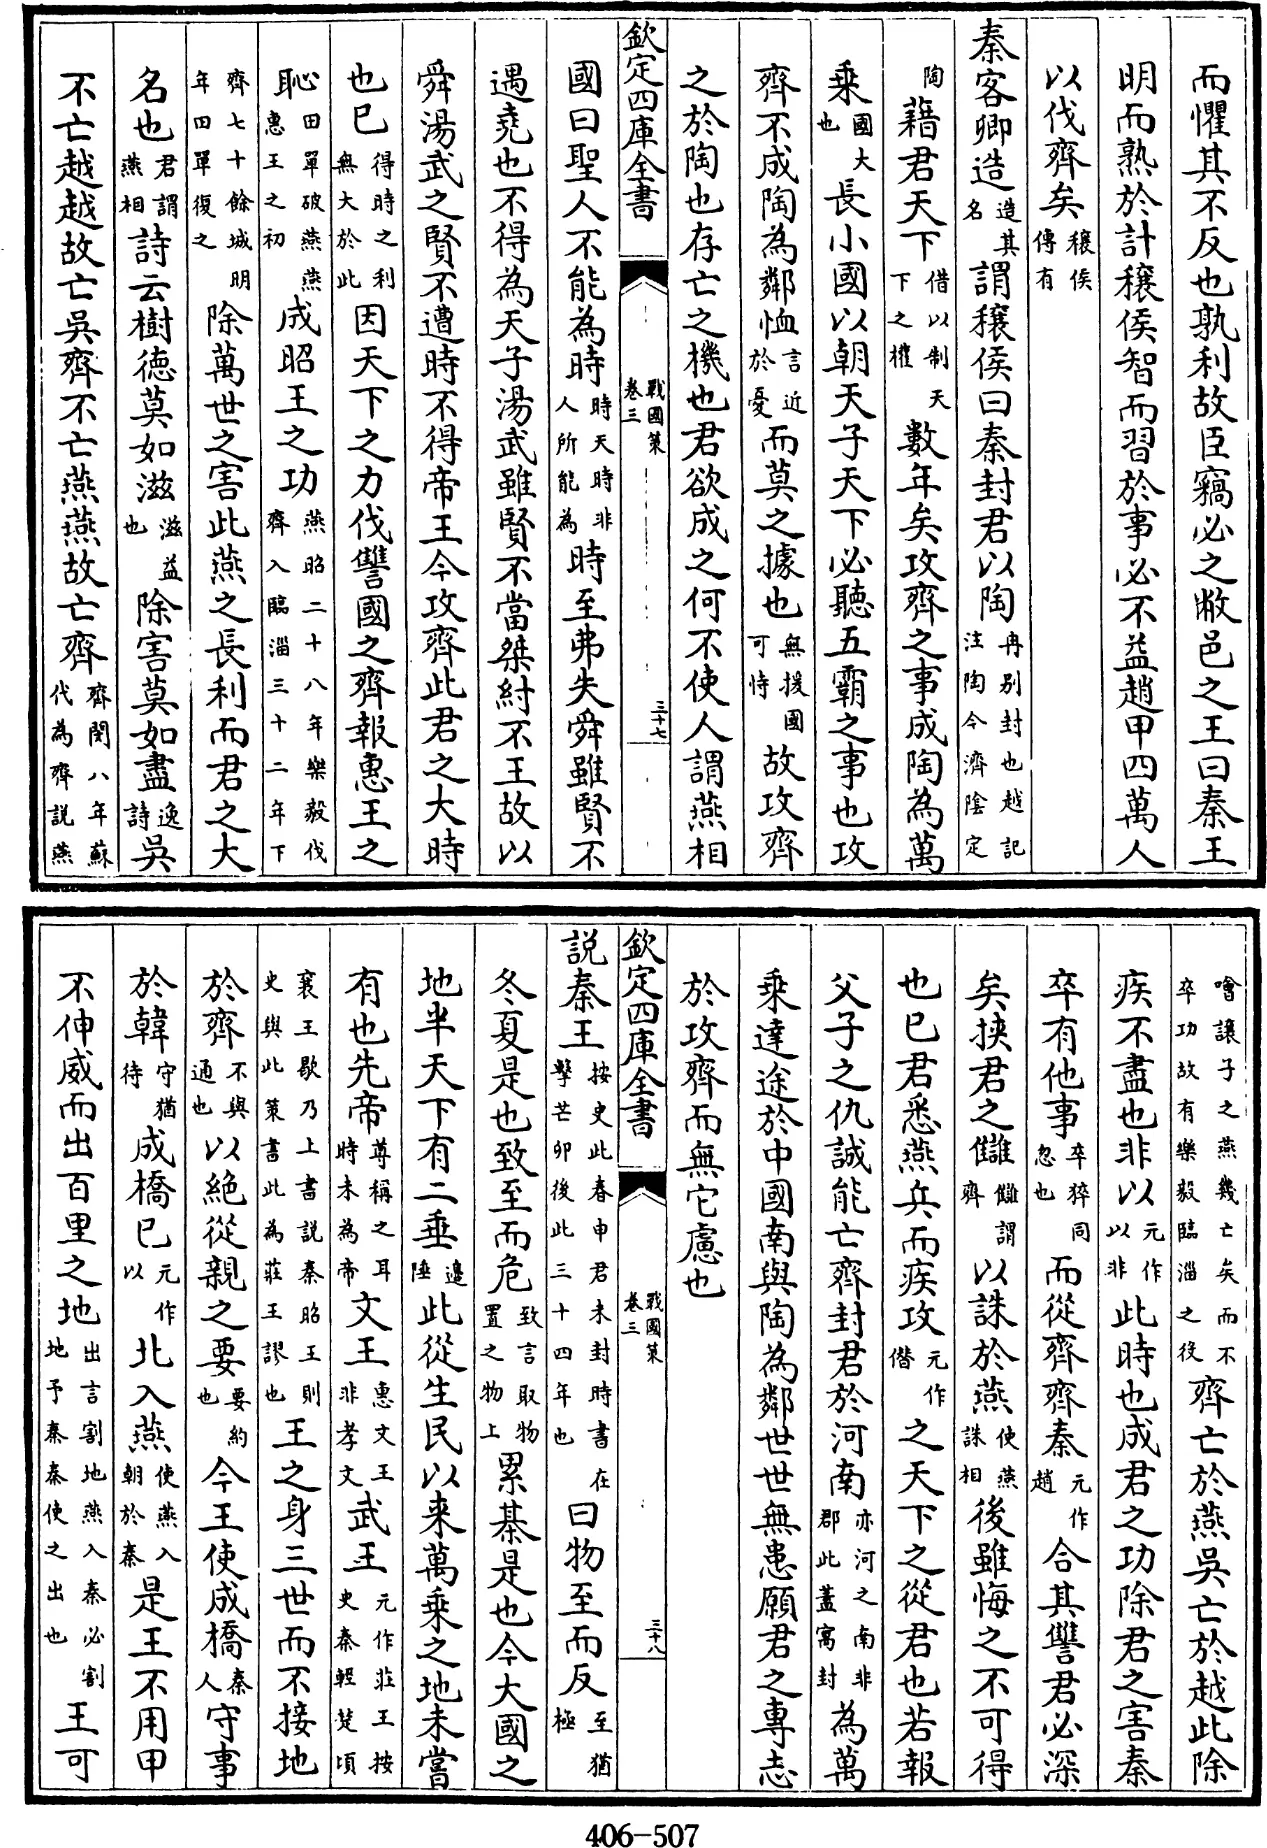 而懼其不反也孰利故臣竊必之敝邑之王曰秦王
明而熟於計穰侯智而習於事必不益趙甲四萬人
以伐齊矣穰侯傳有
秦客卿造造其名謂穰侯曰秦封君以陶冉别封也越記注陶今濟隂定
陶藉君天下借以制天下之權數年矣攻齊之事成陶為萬
乘國大也長小國以朝天子天下必聽五霸之事也攻
齊不成陶為鄰恤言近於憂而莫之據也無援國可恃故攻齊
之於陶也存亡之機也君欲成之何不使人謂燕相
欽定四庫全書
戰國策
卷三
三十七
國曰聖人不能為時時天時非人所能為時至弗失舜雖賢不
遇堯也不得為天子湯武雖賢不當桀紂不王故以
舜湯武之賢不遭時不得帝王今攻齊此君之大時
也已得時之利無大於此因天下之力伐讐國之齊報惠王之
恥田單破燕燕惠王之初成昭王之功燕昭二十八年樂毅伐齊入臨淄三十二年下
齊七十餘城明年田單復之除萬世之害此燕之長利而君之大
名也君謂燕相詩云樹德莫如滋滋益也除害莫如盡逸詩吳
不亡越越故亡吳齊不亡燕燕故亡齊齊閔八年蘇代為齊説燕
噲讓子之燕幾亡矣而不卒功故有樂毅臨淄之役齊亡於燕吳亡於越此除
疾不盡也非以元作以非此時也成君之功除君之害秦
卒有他事卒猝同忽也而從齊齊秦元作趙合其讐君必深
矣挾君之讎讎謂齊以誅於燕使燕誅相後雖悔之不可得
也已君悉燕兵而疾攻元作僭之天下之從君也若報
父子之仇誠能亡齊封君於河南亦河之南非郡此蓋寓封為萬
乘達途於中國南與陶為鄰世世無患願君之專志
於攻齊而無它慮也
欽定四庫全書
戰國策
卷三
三十八
説秦王按史此春申君未封時書在擊芒卯後此三十四年也曰物至而反至猶極
冬夏是也致至而危致言取物置之物上累棊是也今大國之
地半天下有二垂邉陲此從生民以来萬乘之地未嘗
有也先帝尊稱之耳時未為帝文王惠文王非孝文武王元作莊王按史秦輕楚頃
襄王歇乃上書説秦昭王則史與此策書此為莊王謬也王之身三世而不接地
於齊不與通也以絶從親之要要約也今王使成橋秦人守事
於韓守猶待成橋已元作以北入燕使燕入朝於秦是王不用甲
不伸威而出百里之地出言割地燕入秦必割地予秦秦使之出也王可
406-507